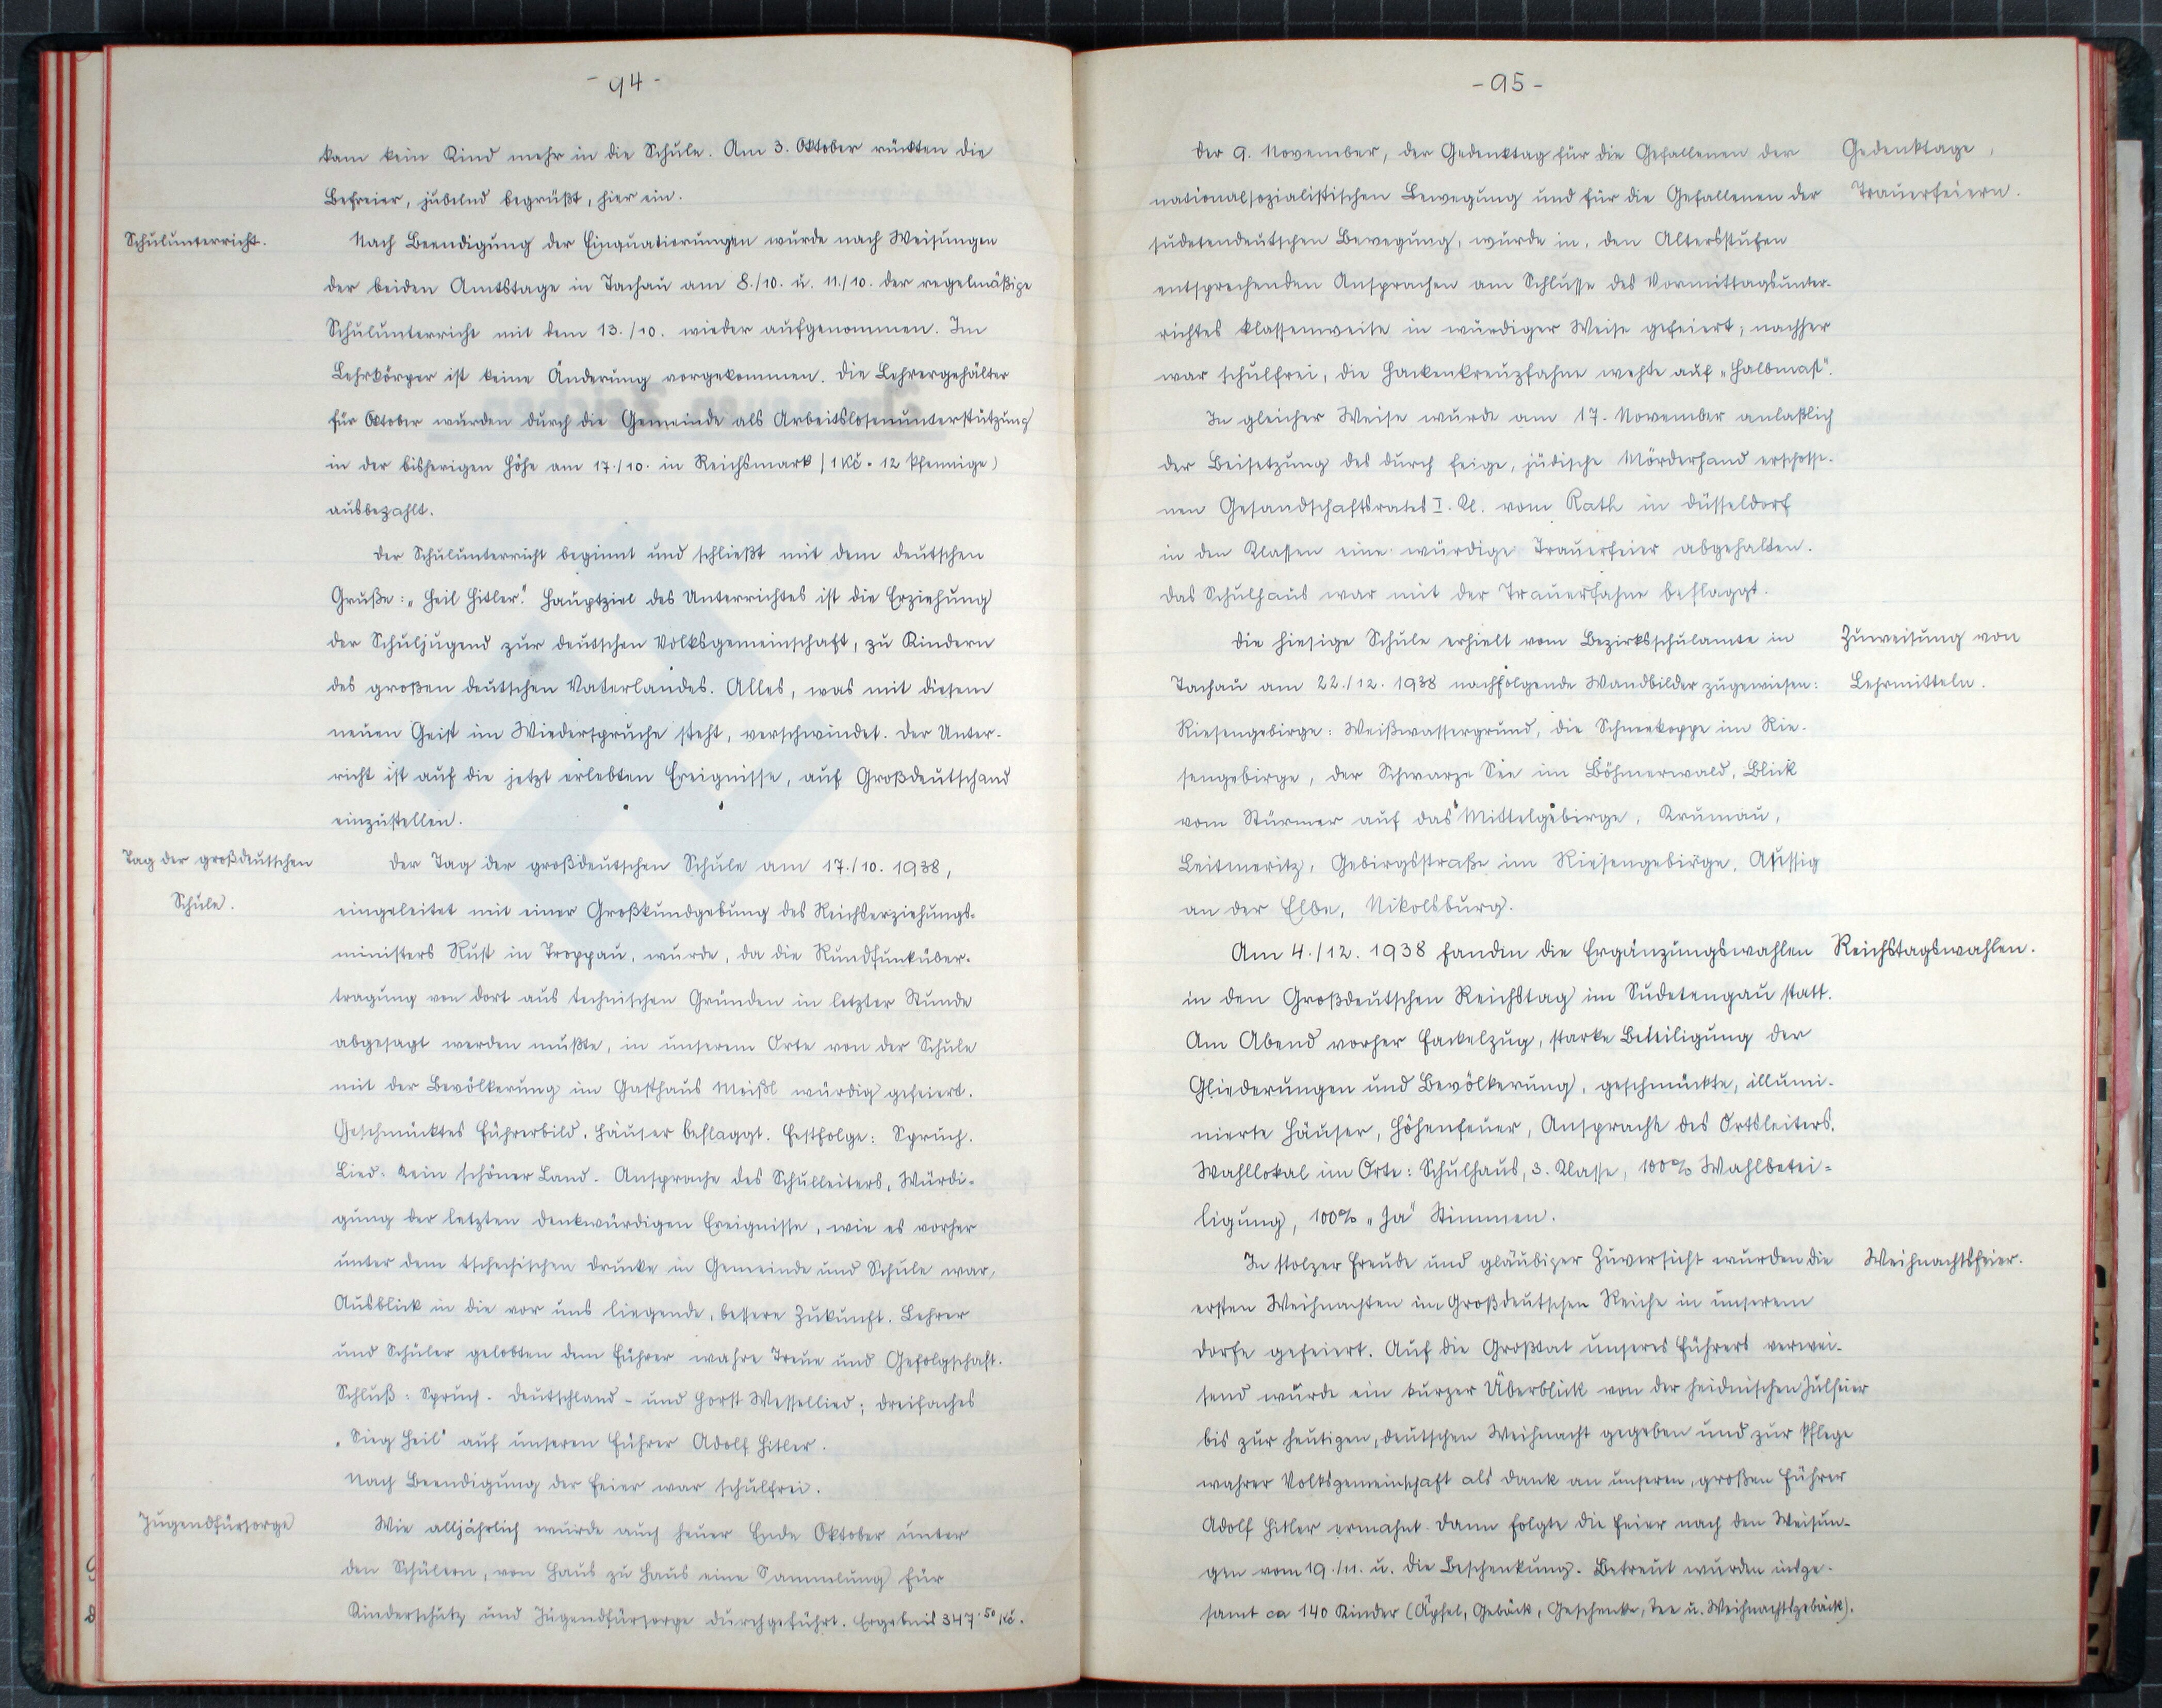 - 94 -
kam kein Kind mehr in die Schule. Am 3. Oktober rückten die
Befreier, jubelnd begrüßt, hier ein.
Schulunterricht.
Nach Beendigung der Einquatierungen wurde nach Weisungen
der beiden Amtstage in Tachau am 8./10. u. 11./10. der regelmäßige
Schulunterricht mit dem 13./10. wieder aufgenommen. Im
Lehrkörper ist keine Änderung vorgekommen. Die Lehrergehälter
für Oktober wurden durch die Gemeinde als Arbeitslosenunterstützung
in der bisherigen Höhe am 17./10. in Reichsmark (1 Kč = 12 Pfennige)
ausbezahlt.
Der Schulunterricht beginnt und schließt mit dem deutschen
Gruße: „Heil Hitler." Hauptziel des Unterrichtes ist die Erziehung
der Schuljugend zur deutschen Volksgemeinschaft, zu Kindern
des großen deutschen Vaterlandes. Alles, was mit diesem
neuen Geist im Wiederspruche steht, verschwindet. Der Unter-
richt ist auf die jetzt erlebten Ereignisse, auf Großdeutschand
einzustellen.
Tag der großdeutschen
Schule.
Der Tag der großdeutschen Schule am 17./10. 1938,
eingeleitet mit einer Großkundgebung des Reichserziehungs-
ministers Rust in Troppau, wurde, da die Rundfunküber-
tragung von dort aus technischen Gründen in letzter Stunde
abgesagt werden mußte, in unserem Orte von der Schule
mit der Bevölkerung im Gasthaus Meißl würdig gefeiert.
Geschmücktes Führerbild. Häuser beflaggt. Festfolge: Spruch.
Lied: Kein schöner Land. Ansprache des Schulleiters, Würdi-
gung der letzten denkwürdigen Ereignisse, wie es vorher
unter dem tschechischen Drucke in Gemeinde und Schule war,
Ausblick in die vor uns liegende, bessere Zukunft. Lehrer
und Schüler gelobten dem Führer wahre Treue und Gefolgschaft.
Schluß: Spruch. Deutschland- und Horst Wessellied; dreifaches
„Sieg Heil" auf unseren Führer Adolf Hitler.
Nach Beendigung der Feier war schulfrei.
Jugendfürsorge
Wie alljährlich wurde auch heuer Ende Oktober unter
den Schülern, von Haus zu Haus eine Sammlung für
Kinderschutz und Jugendfürsorge durchgeführt. Ergebnis 347·50 Kč.
- 95 -
Der 9. November, der Gedenktag für die Gefallenen der
Gedenktage,
nationalsozialistischen Bewegung und für die Gefallenen der
Trauerfeiern.
sudetendeutschen Bewegung, wurde in, den Altersstufen
entsprechenden Ansprachen am Schlusse des Vormittagsunter-
richtes klassenweise in würdiger Weise gefeiert; nachher
war schulfrei, die Hackenkreuzfahne wehte auf „Halbmast".
In gleicher Weise wurde am 17. November anlaßlich
der Beisetzung des durch feige, jüdische Mörderhand erschosse-
nen Gesandschaftsrates I. Kl. vom Rath in Düsseldorf
in den Klassen eine würdige Trauerfeier abgehalten.
Das Schulhaus war mit der Trauerfahne beflaggt.
Die hiesige Schule erhielt vom Bezirksschulamte in
Zuweisung von
Tachau am 22./12. 1938 nachfolgende Wandbilder zugewiesen:
Lehrmitteln.
Riesengebirge: Weißwassergrund, die Schneekoppe im Rie-
sengebirge, der Schwarze See im Böhmerwald, Blick
vom Stürmer auf das Mittelgebirge, Krumau,
Leitmeritz, Gebirgsstraße im Riesengebirge, Aussig
an der Elbe, Nikolsburg.
Am 4./12. 1938 fanden die Ergänzungswahlen
Reichstagswahlen.
in den Großdeutschen Reichstag im Sudetengau statt.
Am Abend vorher Fackelzug, starke Beteiligung der
Gliederungen und Bevölkerung, geschmückte, illumi-
nierte Häuser, Höhenfeuer, Ansprache des Ortsleiters.
Wahllokal im Orte: Schulhaus, 3. Klasse, 100% Wahlbetei-
ligung, 100% „Ja" Stimmen.
In stolzer Freude und gläubiger Zuversicht wurden die
Weihnachtsfeier.
ersten Weihnachten im Großdeutschen Reiche in unserem
Dorfe gefeiert. Auf die Großtat unseres Führers verwei-
send wurde ein kurzer Überblick von der heidnischen Julfeier
bis zur heutigen, deutschen Weihnacht gegeben und zur Pflege
wahrer Volksgemeinschaft als Dank an unseren, großen Führer
Adolf Hitler ermahnt. Dann folgte die Feier nach den Weisun-
gen vom 19./11. u. die Beschenkung. Betreut wurden insge-
samt ca 140 Kinder (Äpfel, Gebäck, Geschenke, Tee u. Weihnachtsgebäck).